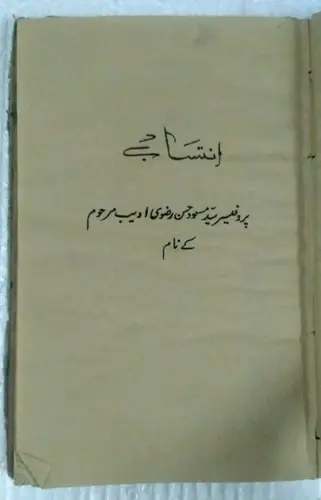 انتساب
پروفیسر سیّد مسعود حسن رضوی ادیب مرحوم
کے نام